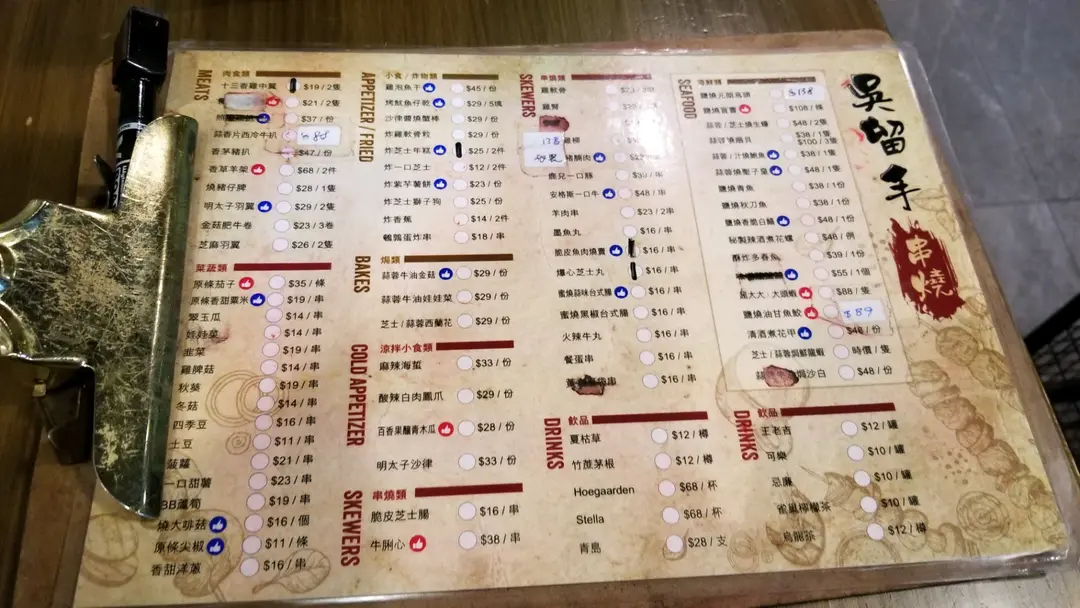 MEATS
肉食類
十三香雞中翼 $19 / 2隻
$21 / 2隻
$37 / 份
蒜香片西冷牛扒
香茅豬扒 $47 / 份
香草羊架 $68 / 2件
燒豬仔脾 $28 / 1隻
明太子羽翼 $29 / 2隻
金菇肥牛卷 $23 / 3卷
芝麻羽翼 $26 / 2隻
菜蔬類
原條茄子 $35 / 條
原條香甜粟米 $19 / 串
翠玉瓜 $14 / 串
娃娃菜 $14 / 串
韭菜 $19 / 串
雞脾菇 $14 / 串
秋葵 $19 / 串
冬菇 $14 / 串
四季豆 $16 / 串
土豆 $11 / 串
菠蘿 $21 / 串
一口甜薯 $23 / 串
BB蘆筍 $19 / 串
燒大啡菇 $16 / 個
原條尖椒 $11 / 條
香甜洋蔥 $16 / 串
APPETIZER / FRIED
小食 / 炸物類
雞泡魚干 $45 / 份
烤魷魚仔乾 $29 / 5塊
沙律醬燒蟹棒 $29 / 份
炸雞軟骨粒 $29 / 份
炸芝士年糕 $25 / 2件
炸一口芝士 $12 / 2件
炸紫芋薯餅 $23 / 份
炸芝士獅子狗 $25 / 份
炸香蕉 $14 / 2件
鵪鶉蛋炸串 $18 / 串
BAKES
焗類
蒜蓉牛油金菇 $29 / 份
蒜蓉牛油娃娃菜 $29 / 份
芝士 / 蒜蓉西蘭花 $29 / 份
COLD APPETIZER
涼拌小食類
麻辣海蜇 $33 / 份
酸辣白肉鳳爪 $29 / 份
百香果釀青木瓜 $28 / 份
明太子沙律 $33 / 份
SKEWERS
串燒類
脆皮芝士腸 $16 / 串
牛脷心 $38 / 串
SKEWERS
串燒類
雞軟骨
雞腎
雞柳
豬腩肉
鹿兒一口豚
安格斯一口牛 $48 / 串
羊肉串 $23 / 2串
墨魚丸 $16 / 串
脆皮魚肉燒賣 $16 / 串
爆心芝士丸 $16 / 串
蜜燒蒜味台式腸 $16 / 串
蜜燒黑椒台式腸 $16 / 串
火辣牛丸 $16 / 串
餐蛋串 $16 / 串
$16 / 串
DRINKS
飲品
夏枯草 $12 / 樽
竹蔗茅根 $12 / 樽
Hoegaarden $68 / 杯
Stella $68 / 杯
青島 $28 / 支
SEAFOOD
海鮮類
鹽燒元朗烏頭 $138
$108 / 條
蒜蓉 / 芝士燒生蠔 $48 / 2隻
蒜蓉燒扇貝 $38 / 1隻
$100 / 3隻
$38 / 1隻
蒜蓉燒聖子皇 $38 / 1隻
鹽燒青魚 $38 / 1份
鹽燒秋刀魚 $38 / 1份
鹽燒香脆白鱔 $48 / 1份
秘製辣酒煮花螺 $48 / 例
酥炸多春魚 $39 / 1份
$55 / 1個
風大大．大頭蝦 $88 / 隻
鹽燒油甘魚鮫 $89
清酒煮花甲 $48 / 份
芝士 / 蒜蓉焗鮮龍蝦 時價 / 隻
焗沙白 $48 / 份
DRINKS
飲品
王老吉 $12 / 罐
可樂 $10 / 罐
忌廉 $10 / 罐
雀巢檸檬茶 $10 / 罐
烏龍茶 $12 / 樽
吳留手
串燒